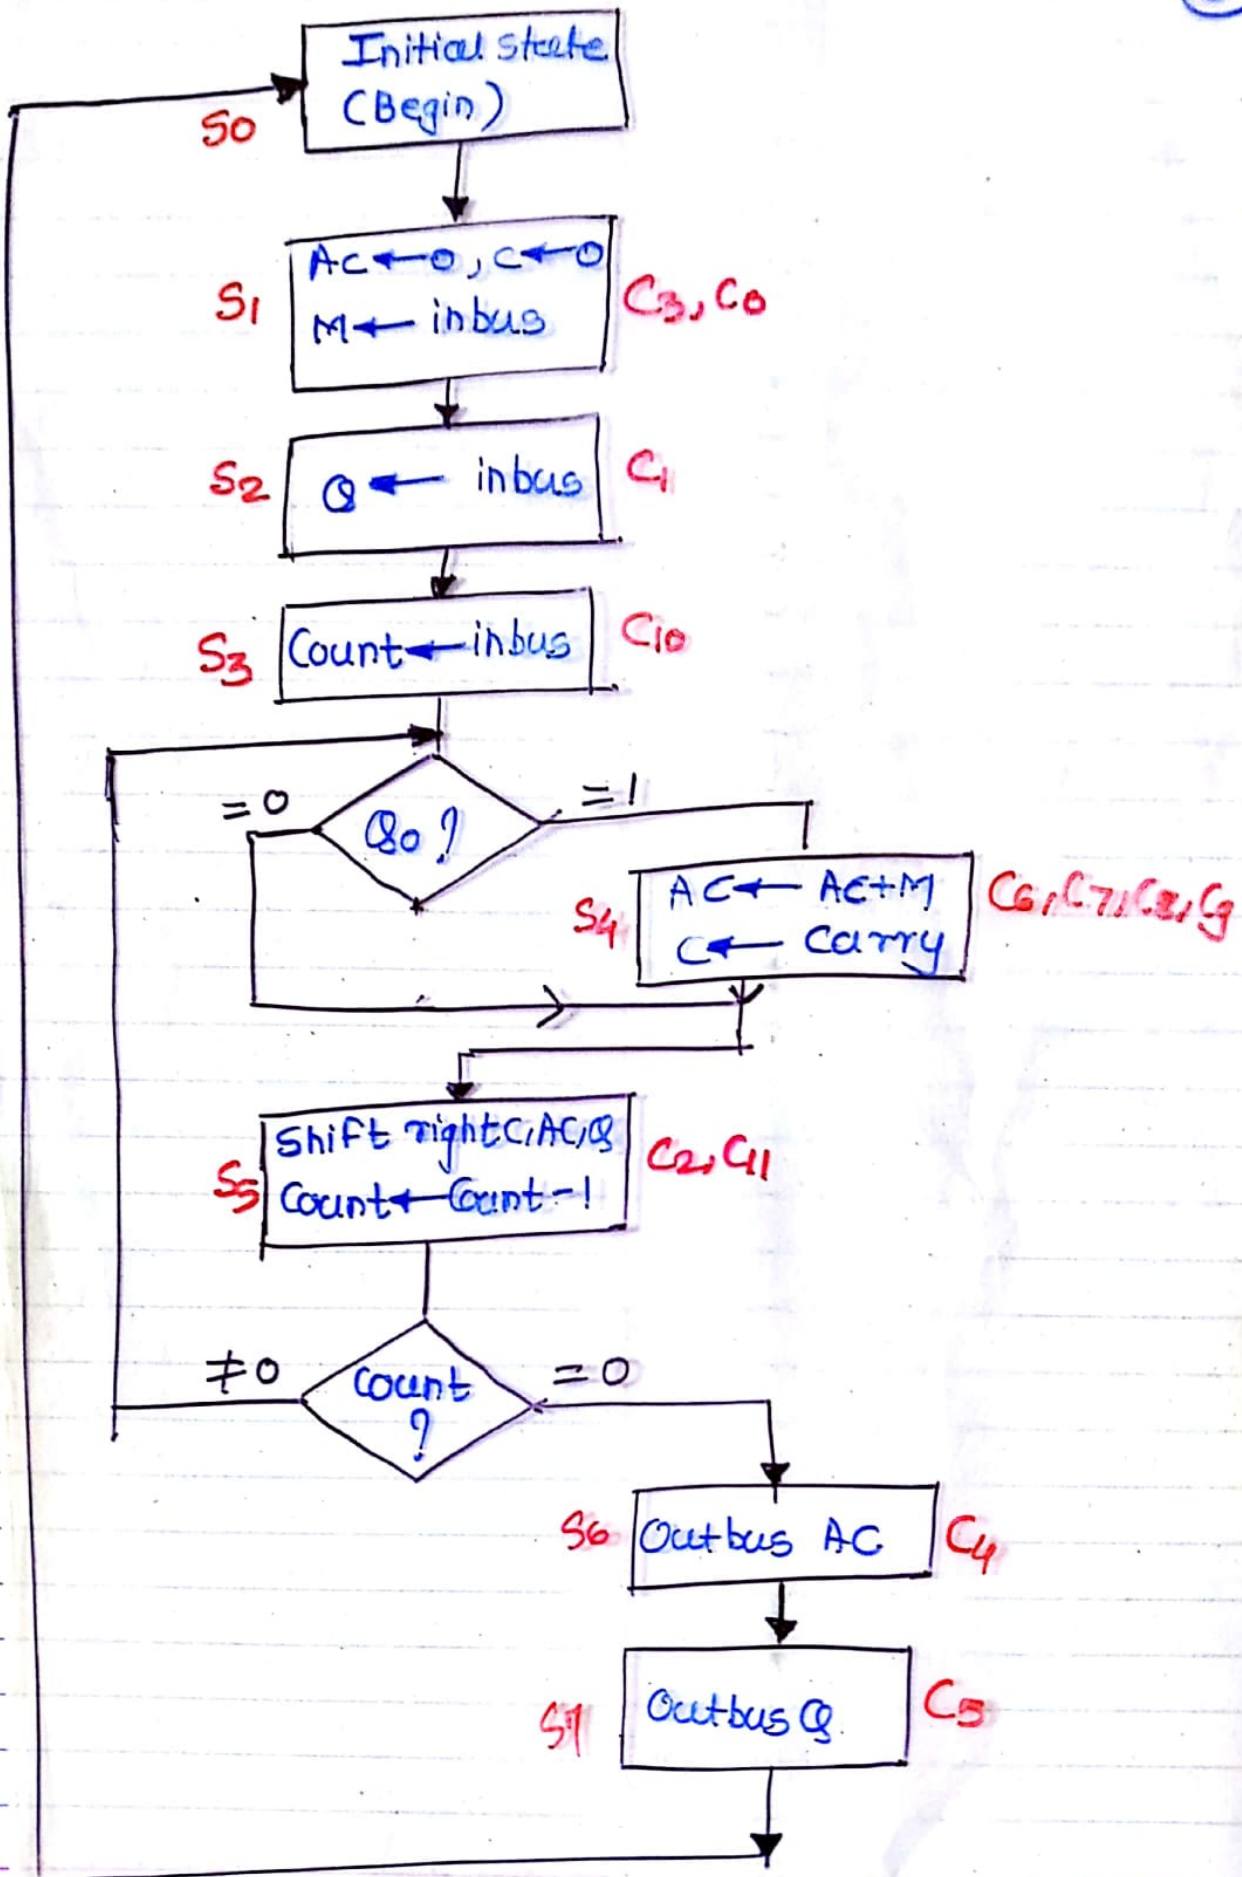 Initial state
(Begin)
S0
AC ← 0, C ← 0
M ← inbus
S1
C3, C0
Q ← inbus
S2
C1
Count ← inbus
S3
C10
= 0
Q0 ?
= 1
AC ← AC+M
C ← Carry
S4
C6, C7, C8, C9
Shift right C, AC, Q
Count ← Count - 1
S5
C2, C11
≠ 0
Count
?
= 0
S6
Outbus AC
C4
S7
Outbus Q
C5